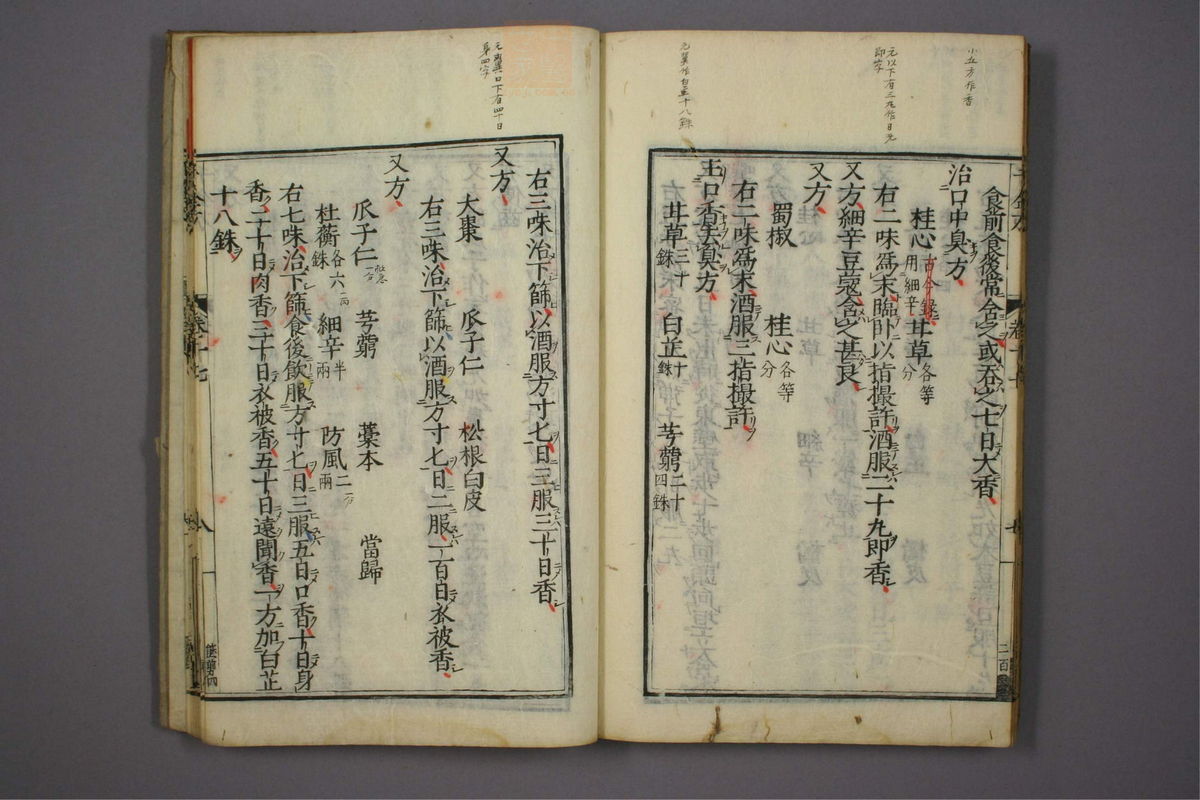 小五方作香
元以下有三丸作日元
即字
元翼作白芷十八銖
食前食後常含之或呑之七日大香
治口中臭方
桂心 甘草各等分
古今録用細辛
右二味爲末臨卧以三指撮許酒服二十九即香
又方細辛豆寇含之甚良
又方
蜀椒 桂心各等分
右二味爲末酒服三指撮許
主口香去臭方
甘草三十銖 白芷十銖 芎藭二十四銖
元翼口下有四十日
身四字
右三味治下篩以酒服方寸匕日三服三十日香
又方
大棗 瓜子仁 松根白皮
右三味治下篩以酒服方寸匕日二服一百日衣被香
又方
瓜子仁 芎藭 藁本 當歸
杜蘅各六銖 細辛半兩 防風二兩
右七味治下篩食後飲服方寸匕日三服五日口香十日身
香二十日肉香三十日衣被香五十日遠聞香一方加白芷
十八銖